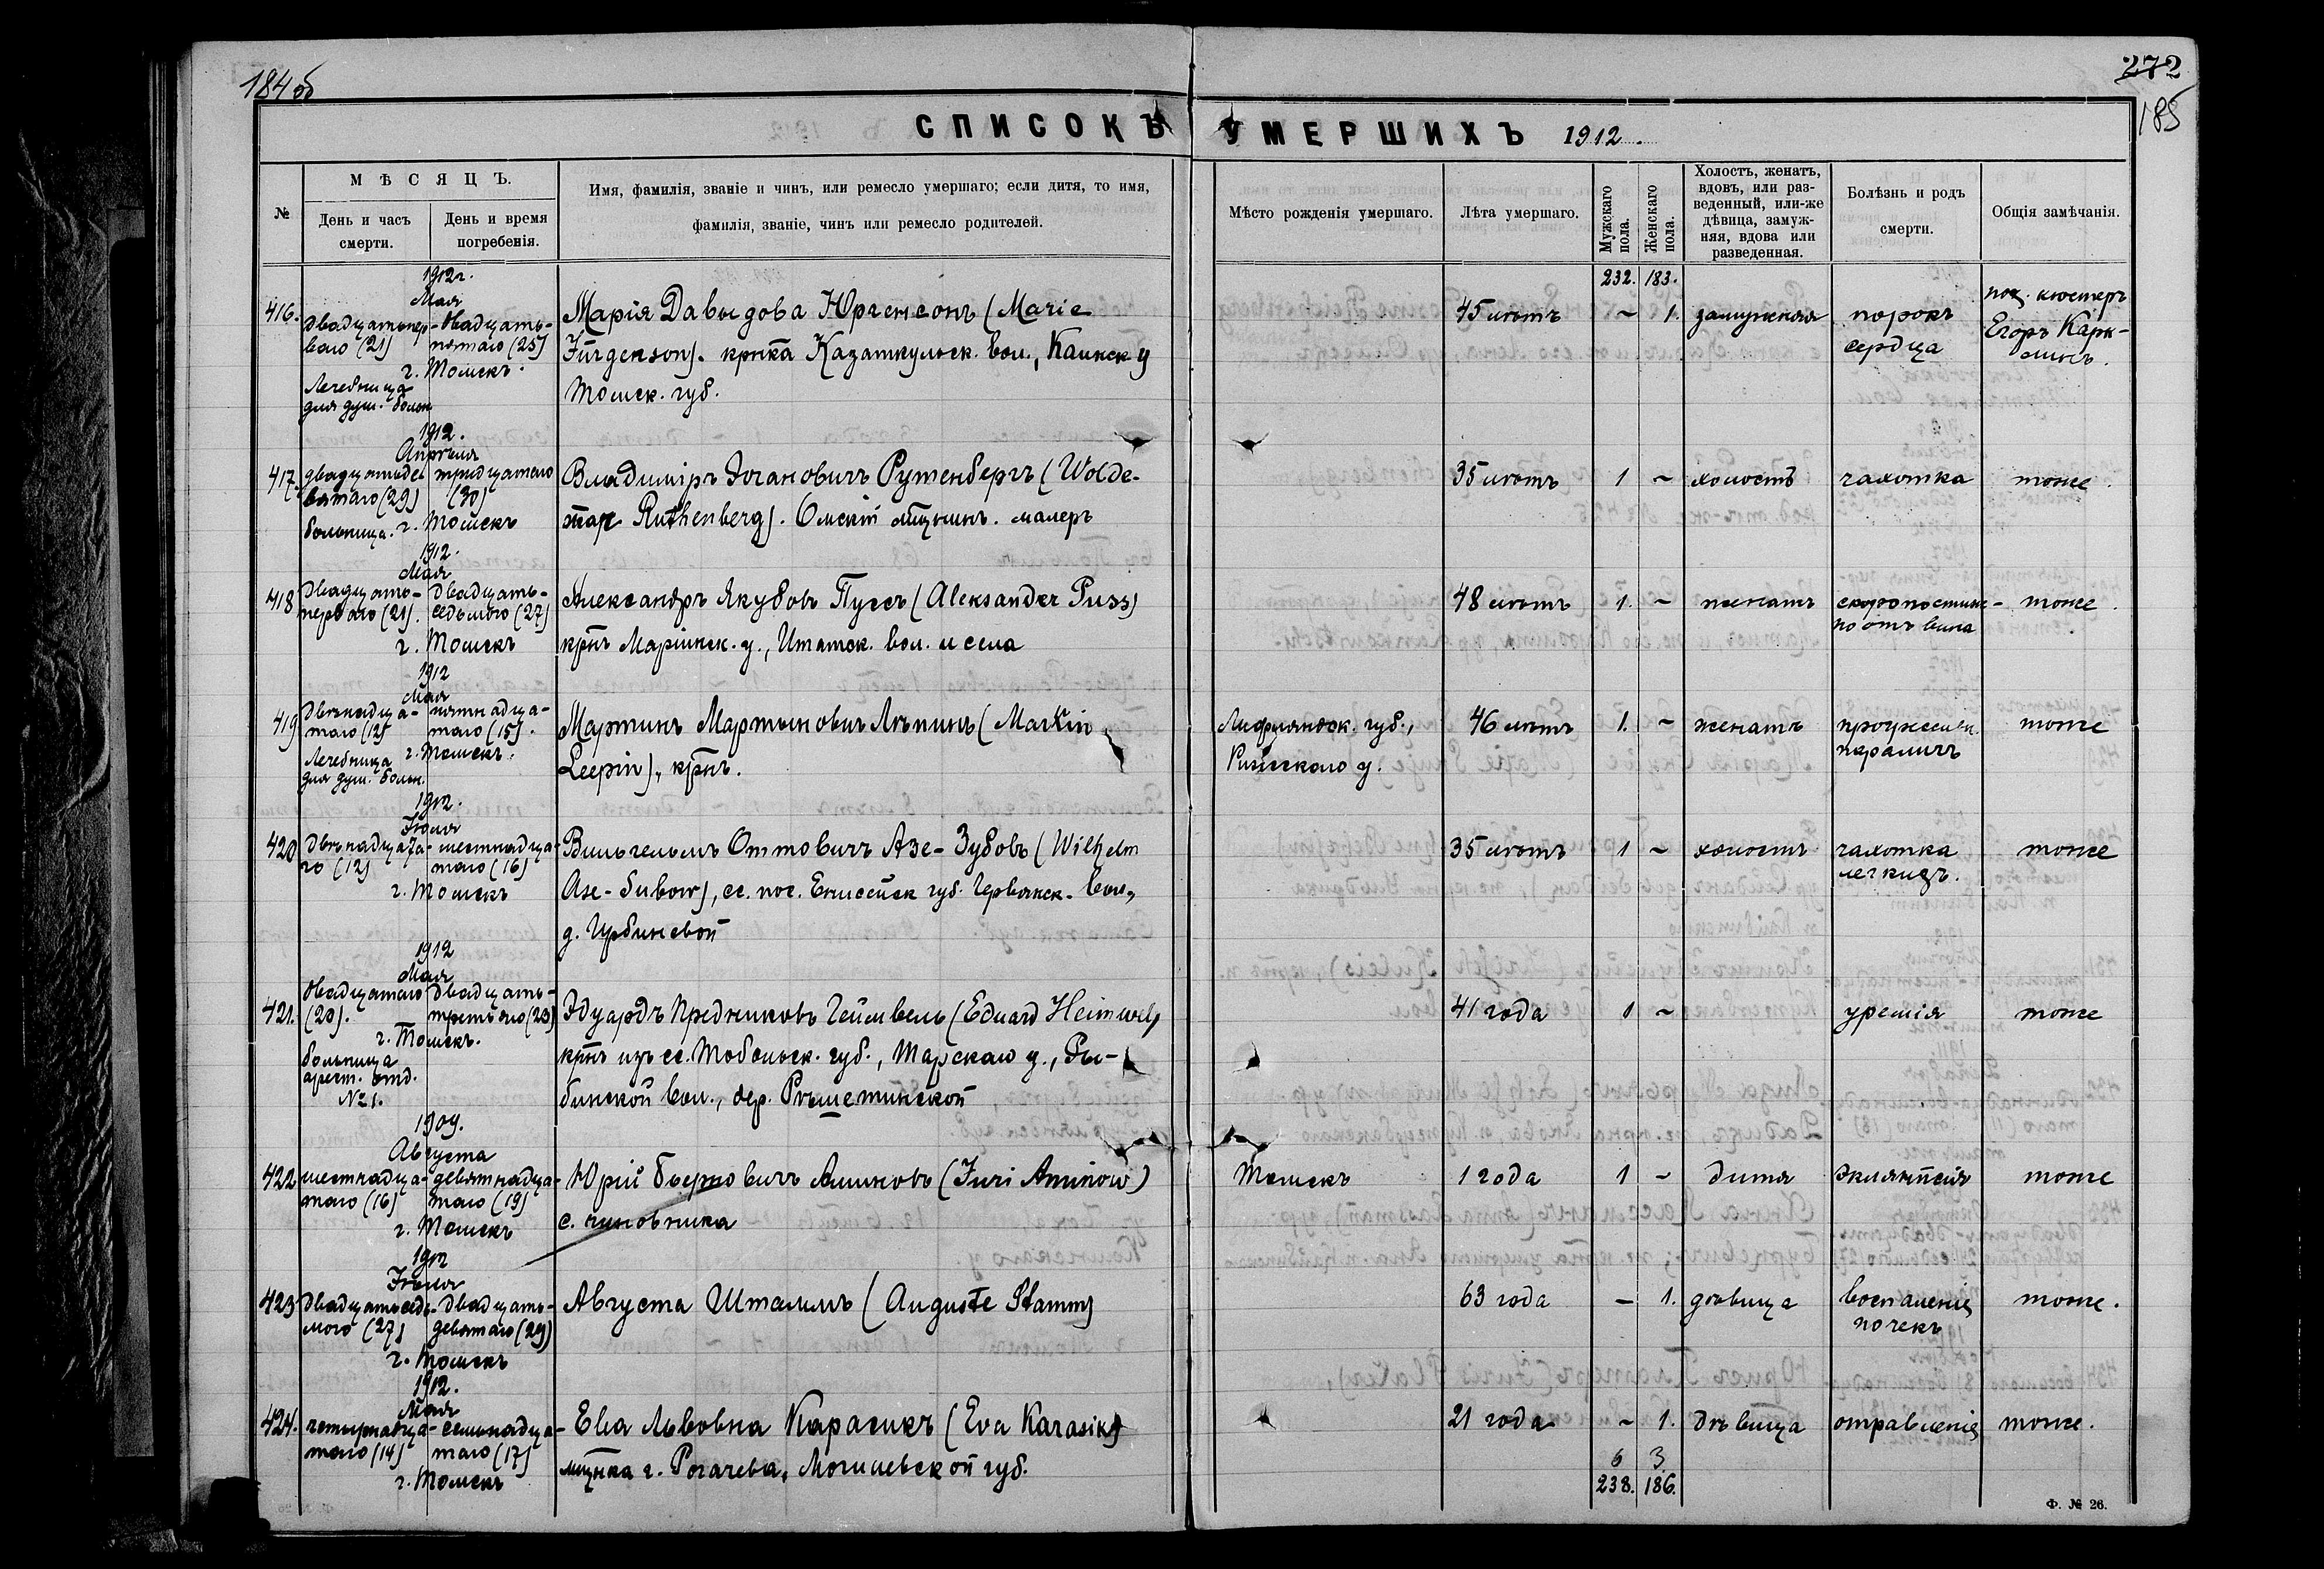 184 об
272
185
СПИСОКЪ УМЕРШИХЪ 1912.
№
МѢСЯЦЪ.
День и часъ смерти.
День и время погребенія.
Имя, фамилія, званіе и чинъ, или ремесло умершаго; если дитя, то имя,
фамилія, званіе, чинъ или ремесло родителей.
Мѣсто рожденія умершаго.
Лѣта умершаго.
Мужскаго пола.
Женскаго пола.
Холостъ, женатъ,
вдовъ, или раз-
веденный, или-же
дѣвица, замуж-
няя, вдова или
разведенная.
Болѣзнь и родъ
смерти.
Общія замѣчанія.
232. 183.
1912 г.
Мая
416.
двадцатьпер-
ваго (21)
двадцать-
пятаго (25)
г. Томскъ.
Лечебница
для душ. больн.
Марія Давыдова Юргенсонъ (Marie
Jürgenson). крнка Казаткульск. вол., Каинск у
Томск. губ.
45 лѣтъ
~
1.
замужняя
порокъ
сердца
кюстеръ
Егоръ Карк-
линъ.
1912.
Апрѣля
417.
двадцатьде-
вятаго (29)
тридцатаго
(30)
больница. г. Томскъ
Владиміръ Іогановичъ Рутенбергъ (Wolde-
mar Ruthenberg). Омскій мѣщнинъ. малеръ
35 лѣтъ
1
~
холостъ
чахотка
тоже.
1912.
Мая
418
двадцать-
перваго (21).
двадцать-
седьмого (27)
г. Томскъ
Александръ Якубовъ Пуссъ (Aleksander Puss)
крнъ Маріинск. у., Итатск. вол. и села
48 лѣтъ
1.
~
женатъ
скоропостиж-
но отъ вина
тоже.
1912
Мая
419
двѣнадца-
таго (12)
пятнадца-
таго (15).
г. Томскъ.
Лечебница
для душ. больн.
Мартинъ Мартыновичъ Лѣпинъ (Martin
Leepin), крнъ.
Лифляндск. губ.,
Рижскаго у.
46 лѣтъ
1.
~
женатъ
параличъ
тоже
1912.
420
двѣнадцата-
го (12)
шестнадца-
таго (16)
г. Томскъ
Вильгельмъ Оттовичъ Азе-Зубовъ (Wilhelm
Ase-Subow), сс. пос. Енисейск губ. Червянск. вол.,
35 лѣтъ
1
~
холостъ
чахотка
легкихъ.
тоже
1912
Мая
421.
двадцатаго
(20).
двадцать-
третьяго (23)
г. Томскъ.
больница
арест. отд.
№ 1.
Эдуардъ Гейнвель (Eduard Heinwel)
крнъ изъ сс. Тобольск. губ., Тарскаго у., Ры-
бинской вол., дер. Рѣшетинской
41 года
1
~
уремія
тоже
1909.
Августа
422
шестнадца-
таго (16)
девятнадца-
таго (19)
г. Томскъ
Юрій Аминовъ (Juri Aminow)
с. чиновника
Томскъ
1 года
1
~
дитя
эклямпсія
тоже
1912
423
двадцатьседь-
мого (27)
двадцать-
девятаго (29)
г. Томскъ
Августа Штаммъ (Auguste Stamm)
63 года
–
1.
дѣвица
воспаленіе
почекъ
тоже.
1912.
Мая
424.
четырнадца-
таго (14)
семнадца-
таго (17)
г. Томскъ
Ева Львовна Карасикъ (Eva Karasik)
мѣщнка г. Рогачева, Могилевской губ.
21 года
~
1.
дѣвица
отравленіе
тоже.
6 3
238. 186.
Ф. № 26.